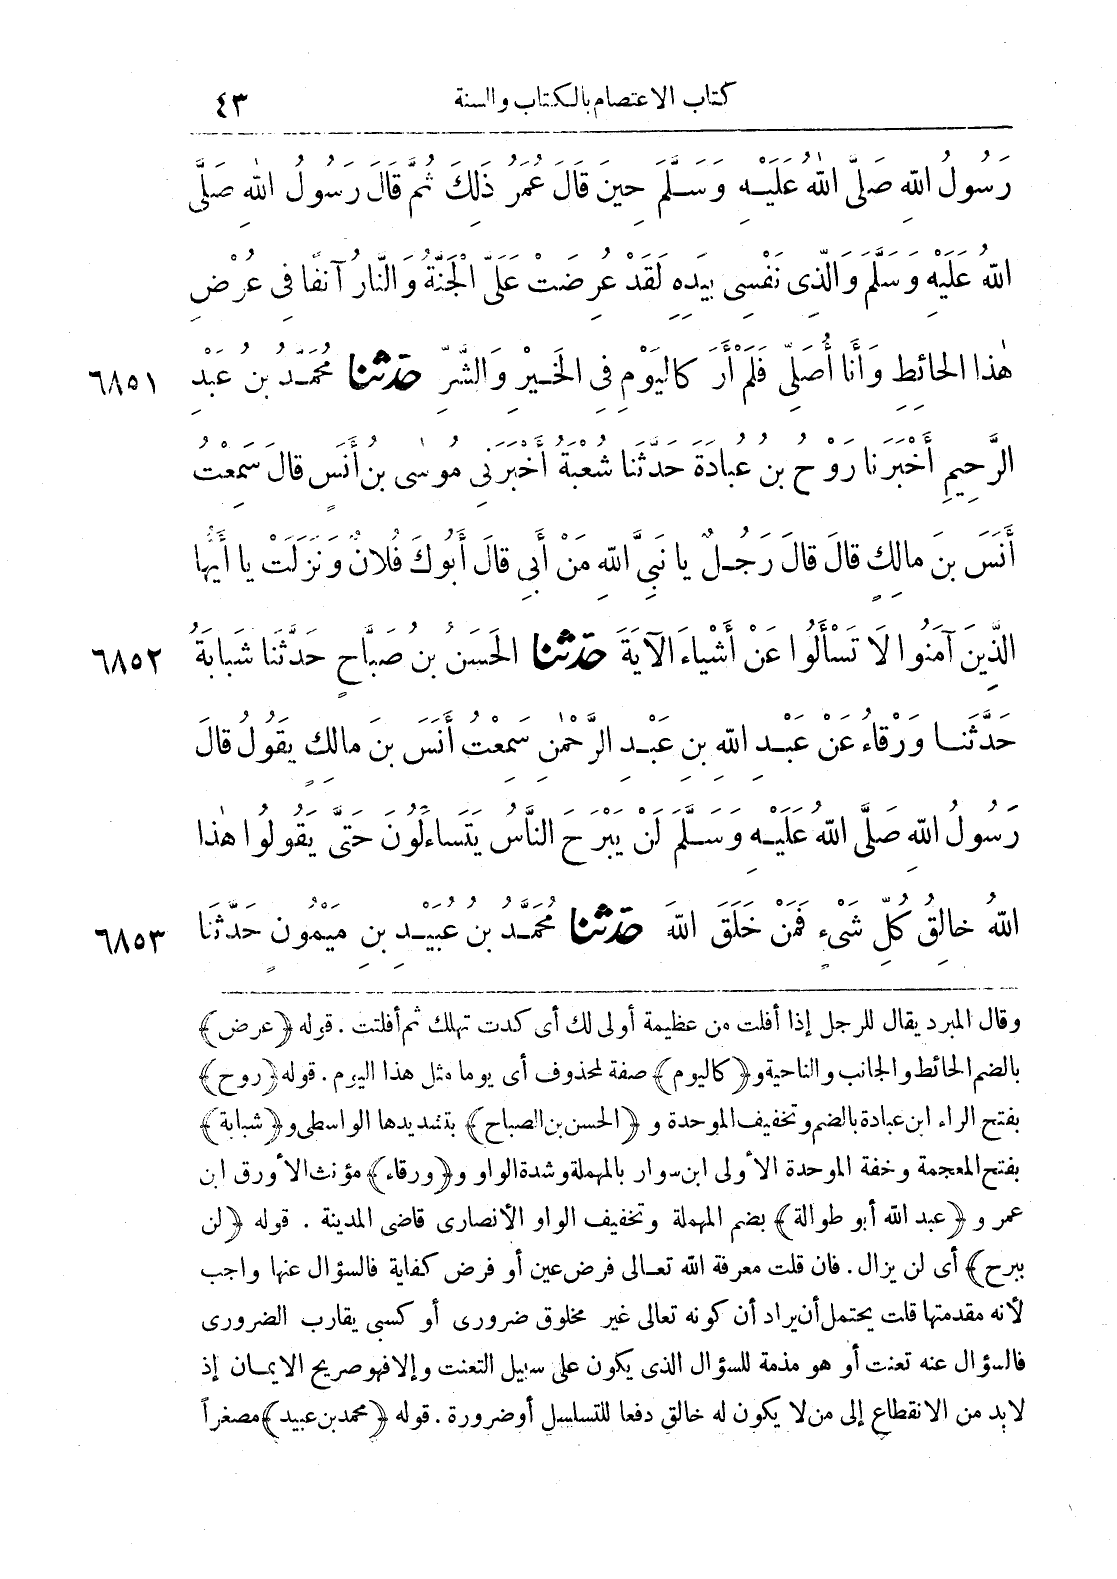 كتاب الاعتصام بالكتاب والسنة ٤٣
رَسُولُ اللهِ صَلَّى اللهُ عَلَيْهِ وَسَلَّمَ حِينَ قَالَ عُمَرُ ذَلِكَ ثُمَّ قَالَ رَسُولُ اللهِ صَلَّى
اللهُ عَلَيْهِ وَسَلَّمَ وَالَّذِى نَفْسِى بِيَدِهِ لَقَدْ عُرِضَتْ عَلَىَّ الْجَنَّةُ وَالنَّارُ آنِفًا فِى عُرْضِ
هٰذَا الحَائِطِ وَأَنَا أُصَلِّى فَلَمْ أَرَ كَالْيَوْمِ فِى الخَيْرِ وَالشَّرِّ حدّثنا مُحَمَّدُ بنُ عَبْدِ ٦٨٥١
الرَّحِيمِ أَخْبَرَنَا رَوْحُ بنُ عُبَادَةَ حَدَّثَنَا شُعْبَةُ أَخْبَرَنِى مُوسَى بنُ أَنَسٍ قَالَ سَمِعْتُ
أَنَسَ بنَ مَالِكٍ قَالَ قَالَ رَجُلٌ يَا نَبِىَّ اللهِ مَنْ أَبِى قَالَ أَبُوكَ فُلَانٌ وَنَزَلَتْ يَا أَيُّهَا
الَّذِينَ آمَنُوا لَا تَسْأَلُوا عَنْ أَشْيَاءَ الآيَةَ حدّثنا الحَسَنُ بنُ صَبَّاحٍ حَدَّثَنَا شَبَابَةُ ٦٨٥٢
حَدَّثَنَا وَرْقَاءُ عَنْ عَبْدِ اللهِ بنِ عَبْدِ الرَّحْمٰنِ سَمِعْتُ أَنَسَ بنَ مَالِكٍ يَقُولُ قَالَ
رَسُولُ اللهِ صَلَّى اللهُ عَلَيْهِ وَسَلَّمَ لَنْ يَبْرَحَ النَّاسُ يَتَسَاءَلُونَ حَتَّى يَقُولُوا هٰذَا
اللهُ خَالِقُ كُلِّ شَىْءٍ فَمَنْ خَلَقَ اللهَ حدّثنا مُحَمَّدُ بنُ عُبَيْدِ بنِ مَيْمُونٍ حَدَّثَنَا ٦٨٥٣
وقال المبرد يقال للرجل إذا أفلت من عظيمة أولى لك أى كدت تهلك ثم أفلتت . قوله ﴿عرض﴾
بالضم الحائط والجانب والناحية و﴿كاليوم﴾ صفة لمحذوف أى يوما مثل هذا اليوم . قوله ﴿روح﴾
بفتح الراء ابن عبادة بالضم وتخفيف الموحدة و ﴿الحسن بن الصباح﴾ بتشديدها الواسطى و﴿شبابة﴾
بفتح المعجمة وخفة الموحدة الأولى ابن سوار بالمهملة وشدة الواو و﴿ورقاء﴾ مؤنث الأورق ابن
عمر و ﴿عبد الله أبو طوالة﴾ بضم المهملة وتخفيف الواو الأنصارى قاضى المدينة . قوله ﴿لن
يبرح﴾ أى لن يزال . فان قلت معرفة الله تعالى فرض عين أو فرض كفاية فالسؤال عنها واجب
لأنه مقدمتها قلت يحتمل أن يراد أن كونه تعالى غير مخلوق ضرورى أو كسبى يقارب الضرورى
فالسؤال عنه تعنت أو هو مذمة للسؤال الذى يكون على سبيل التعنت وإلا فهو صريح الايمان إذ
لابد من الانقطاع إلى من لا يكون له خالق دفعا للتسلسل أو ضرورة . قوله ﴿محمد بن عبيد﴾ مصغراً